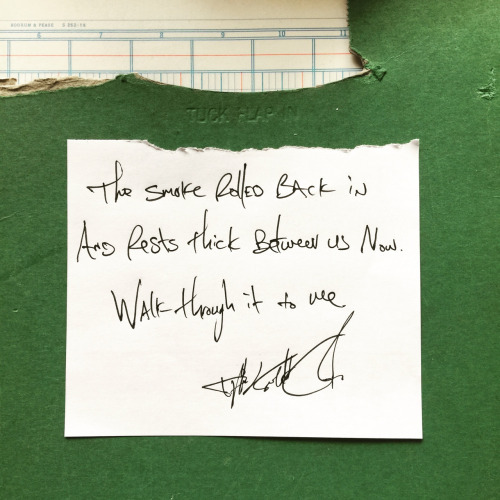 6 7 8 9 10 11
TUCK FLAP IN
The smoke Rolled BACK iN
AND Rests thick Between us Now.
WALK through it to me